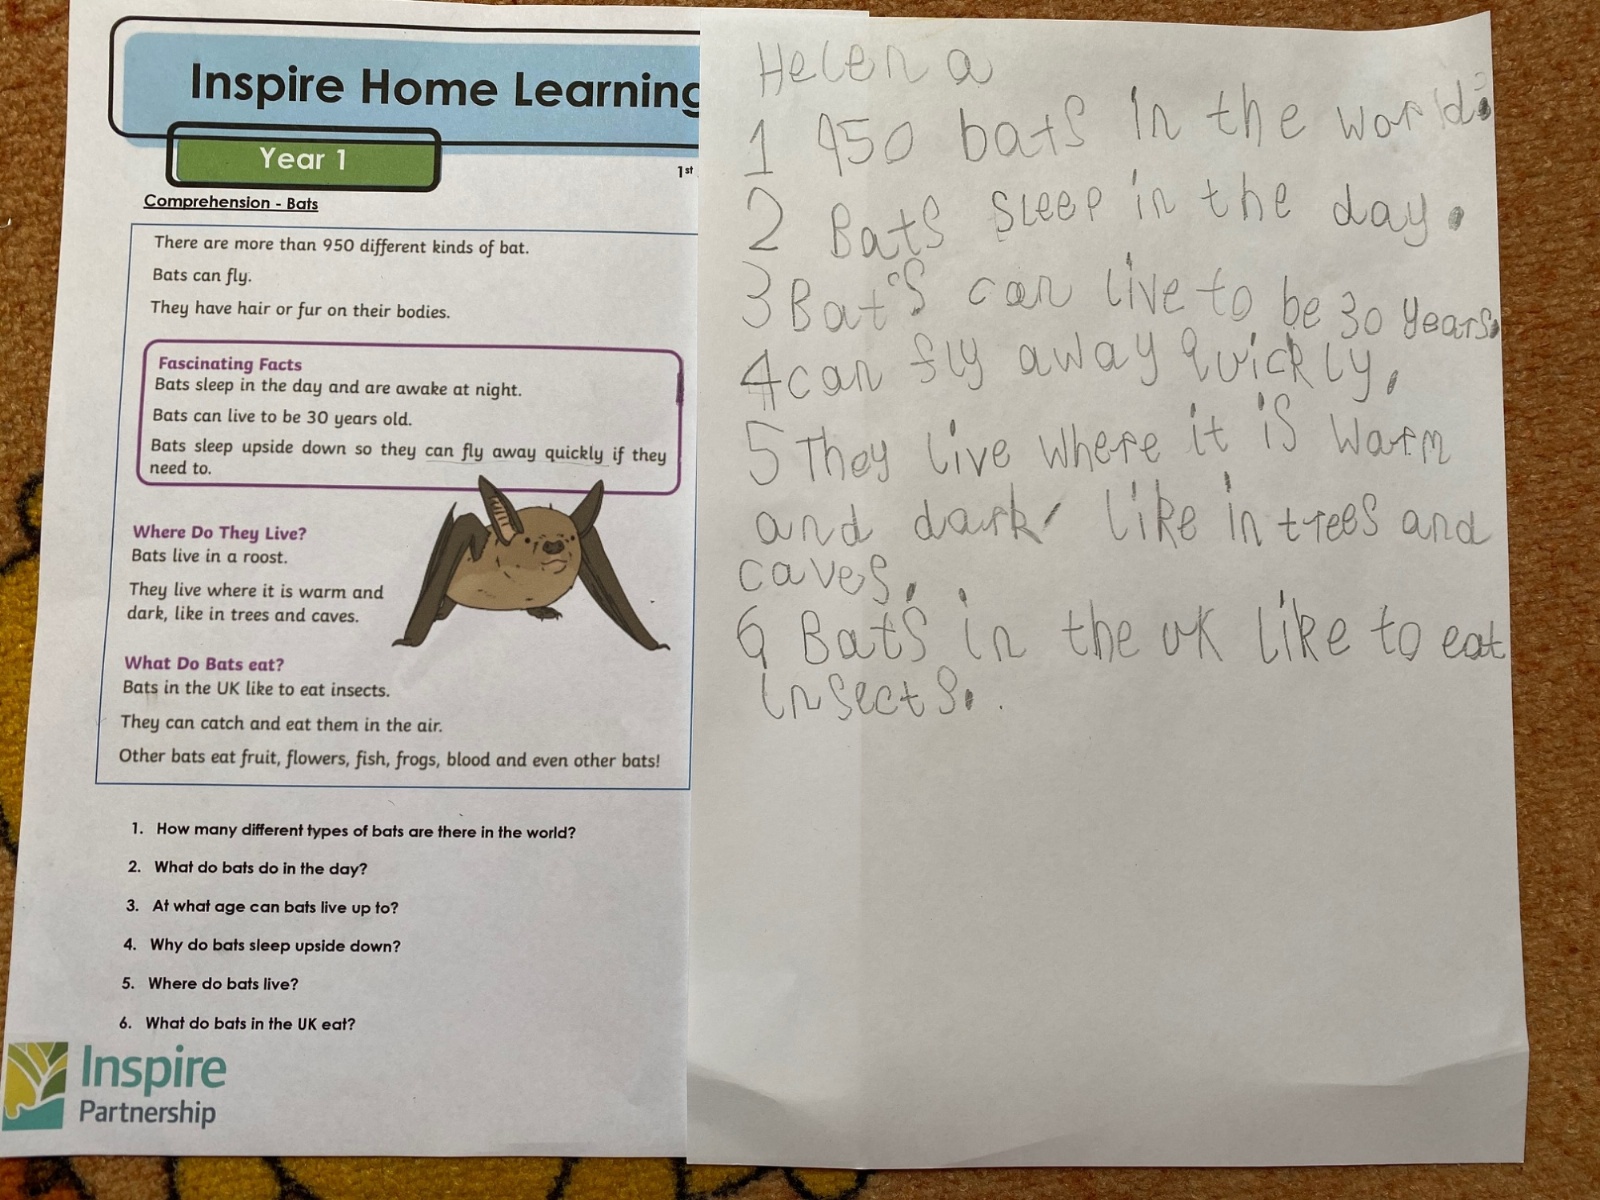 Inspire Home Learning
Year 1
1st
Comprehension - Bats
There are more than 950 different kinds of bat.
Bats can fly.
They have hair or fur on their bodies.
Fascinating Facts
Bats sleep in the day and are awake at night.
Bats can live to be 30 years old.
Bats sleep upside down so they can fly away quickly if they
need to.
Where Do They Live?
Bats live in a roost.
They live where it is warm and
dark, like in trees and caves.
What Do Bats eat?
Bats in the UK like to eat insects.
They can catch and eat them in the air.
Other bats eat fruit, flowers, fish, frogs, blood and even other bats!
1. How many different types of bats are there in the world?
2. What do bats do in the day?
3. At what age can bats live up to?
4. Why do bats sleep upside down?
5. Where do bats live?
6. What do bats in the UK eat?
Inspire
Partnership
Helena
1 950 bats in the world.
2 Bats sleep in the day.
3 Bat's can live to be 30 years.
4 can fly away quickly.
5 They live where it is warm
and dark like in trees and
caves.
6 Bats in the UK like to eat
insects.